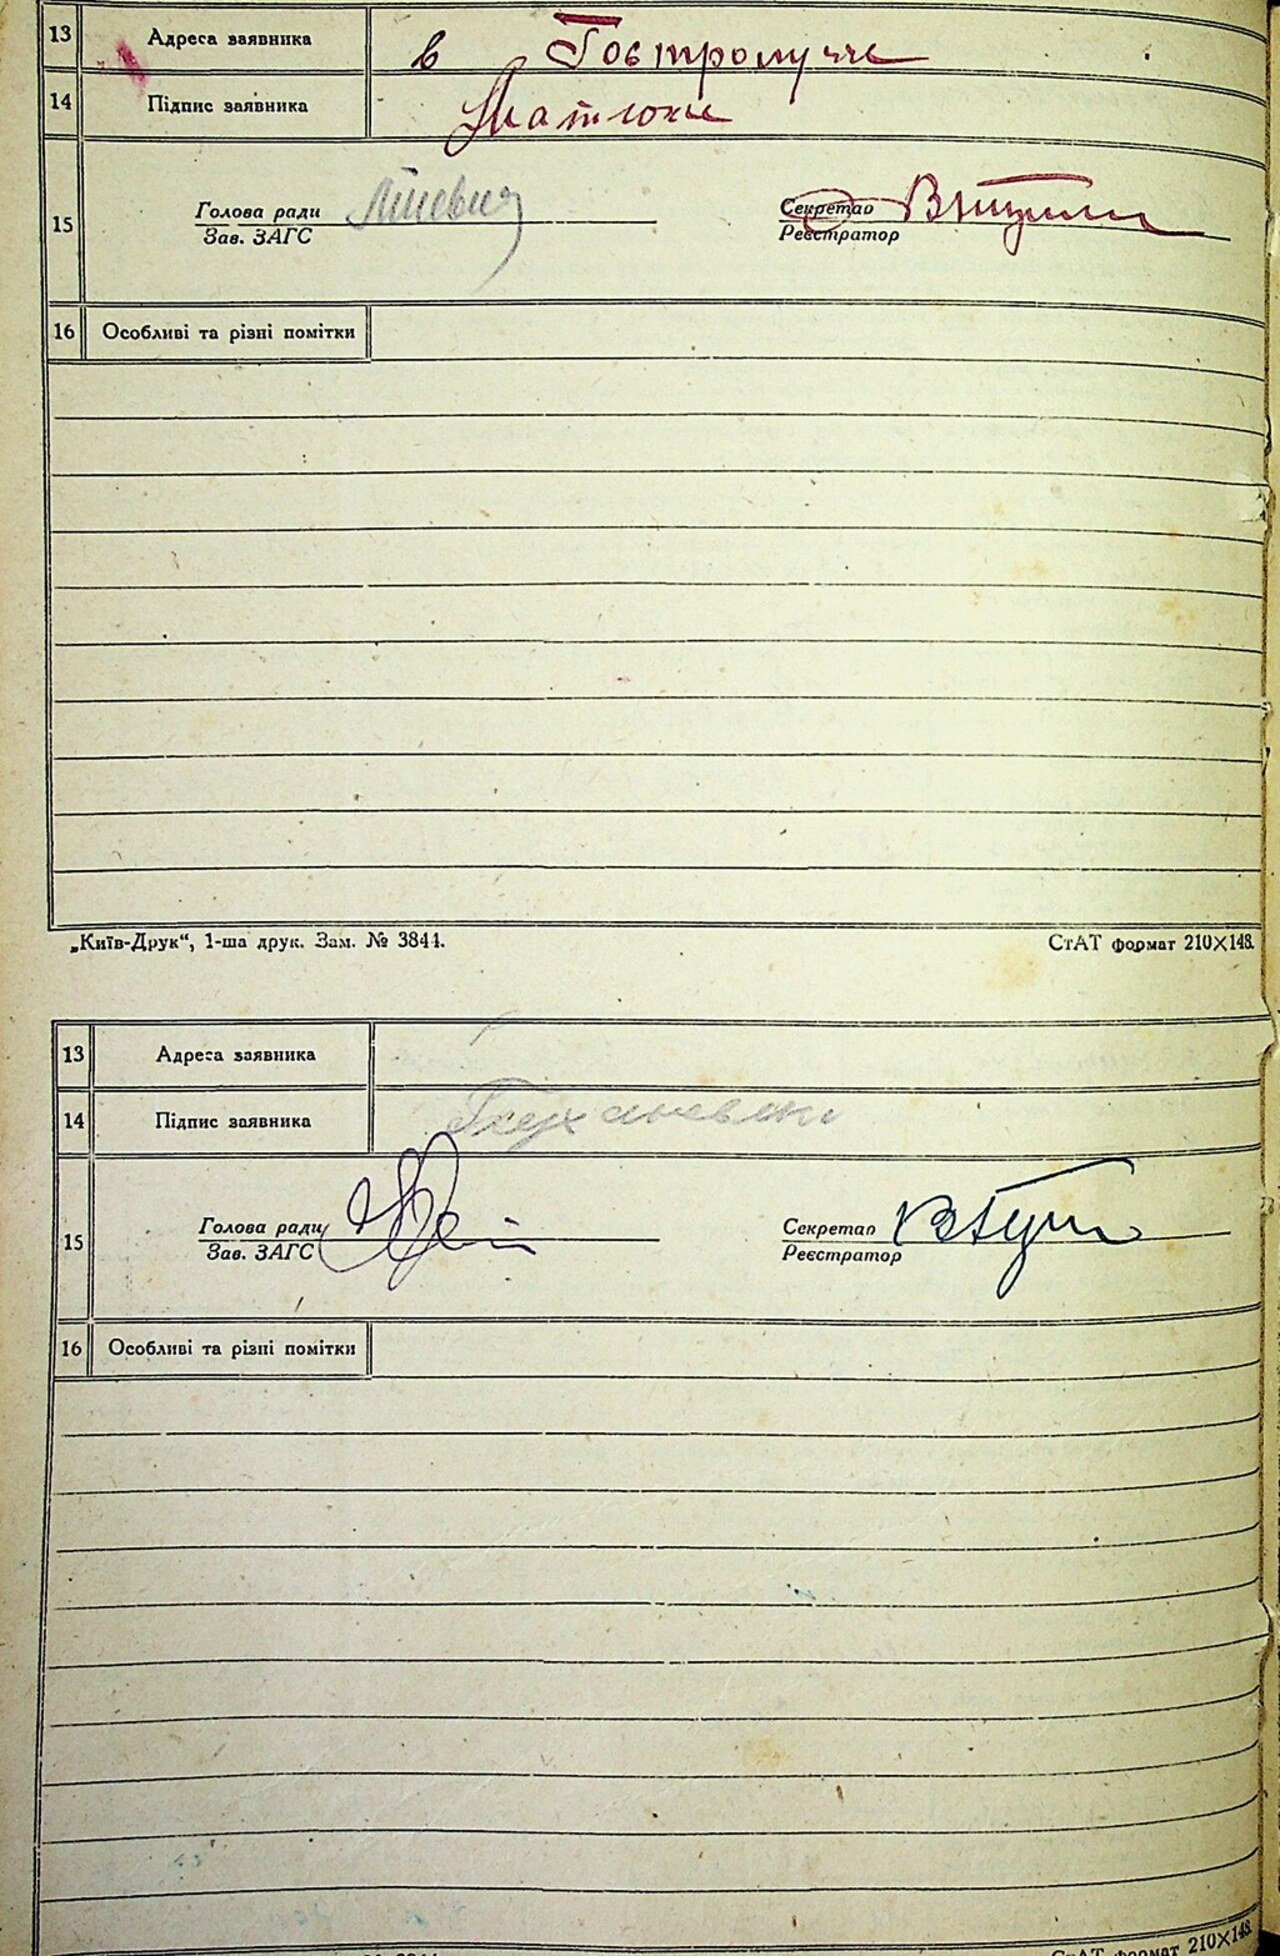 13 Адреса заявника в Гостролуччє
14 Підпис заявника
15 Голова ради Секретар
Зав. ЗАГС Реєстратор
16 Особливі та різні помітки
„Київ-Друк“, 1-ша друк. Зам. № 3844. СтАТ формат 210×148.
13 Адреса заявника
14 Підпис заявника
15 Голова ради Секретар
Зав. ЗАГС Реєстратор
16 Особливі та різні помітки
3844. СтАТ формат 210×148